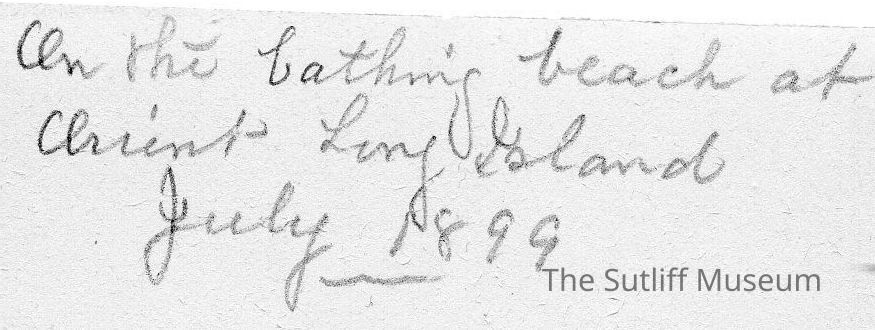 On the bathing beach at
Orient Long Island
July 1899
The Sutliff Museum